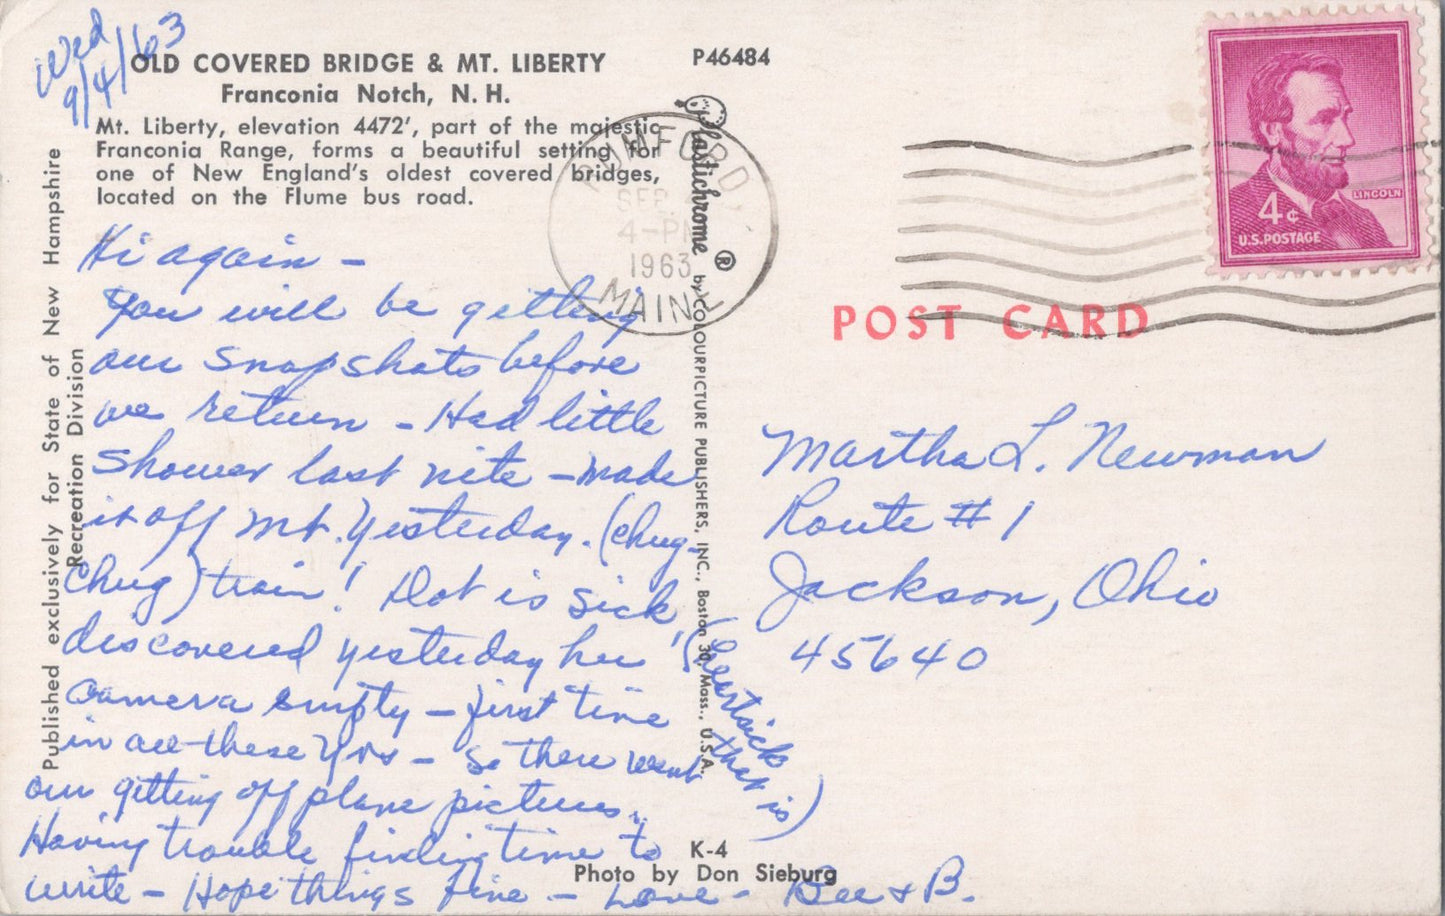 Wed
9/4/63
OLD COVERED BRIDGE & MT. LIBERTY
Franconia Notch, N. H.
Mt. Liberty, elevation 4472', part of the majestic
Franconia Range, forms a beautiful setting for
one of New England's oldest covered bridges,
located on the Flume bus road.
P46484
Published exclusively for State of New Hampshire
Recreation Division
Hi again –
You will be getting
our snapshots before
we return – Had little
shower last nite – made
it off Mt. Yesterday. (chug-
chug) train! Dot is sick,
(heartsick
that is)
discovered yesterday her
camera empty – first time
in all these yrs – So there went
our getting off plane pictures.
Having trouble finding time to
write – Hope things fine – Love – Bee & B.
Plastichrome ® by COLOURPICTURE PUBLISHERS, INC., Boston 30, Mass., U.S.A.
K-4
Photo by Don Sieburg
RUMFORD
SEP
4-PM
1963
MAINE
LINCOLN
4¢
U.S. POSTAGE
POST CARD
Martha L. Newman
Route #1
Jackson, Ohio
45640